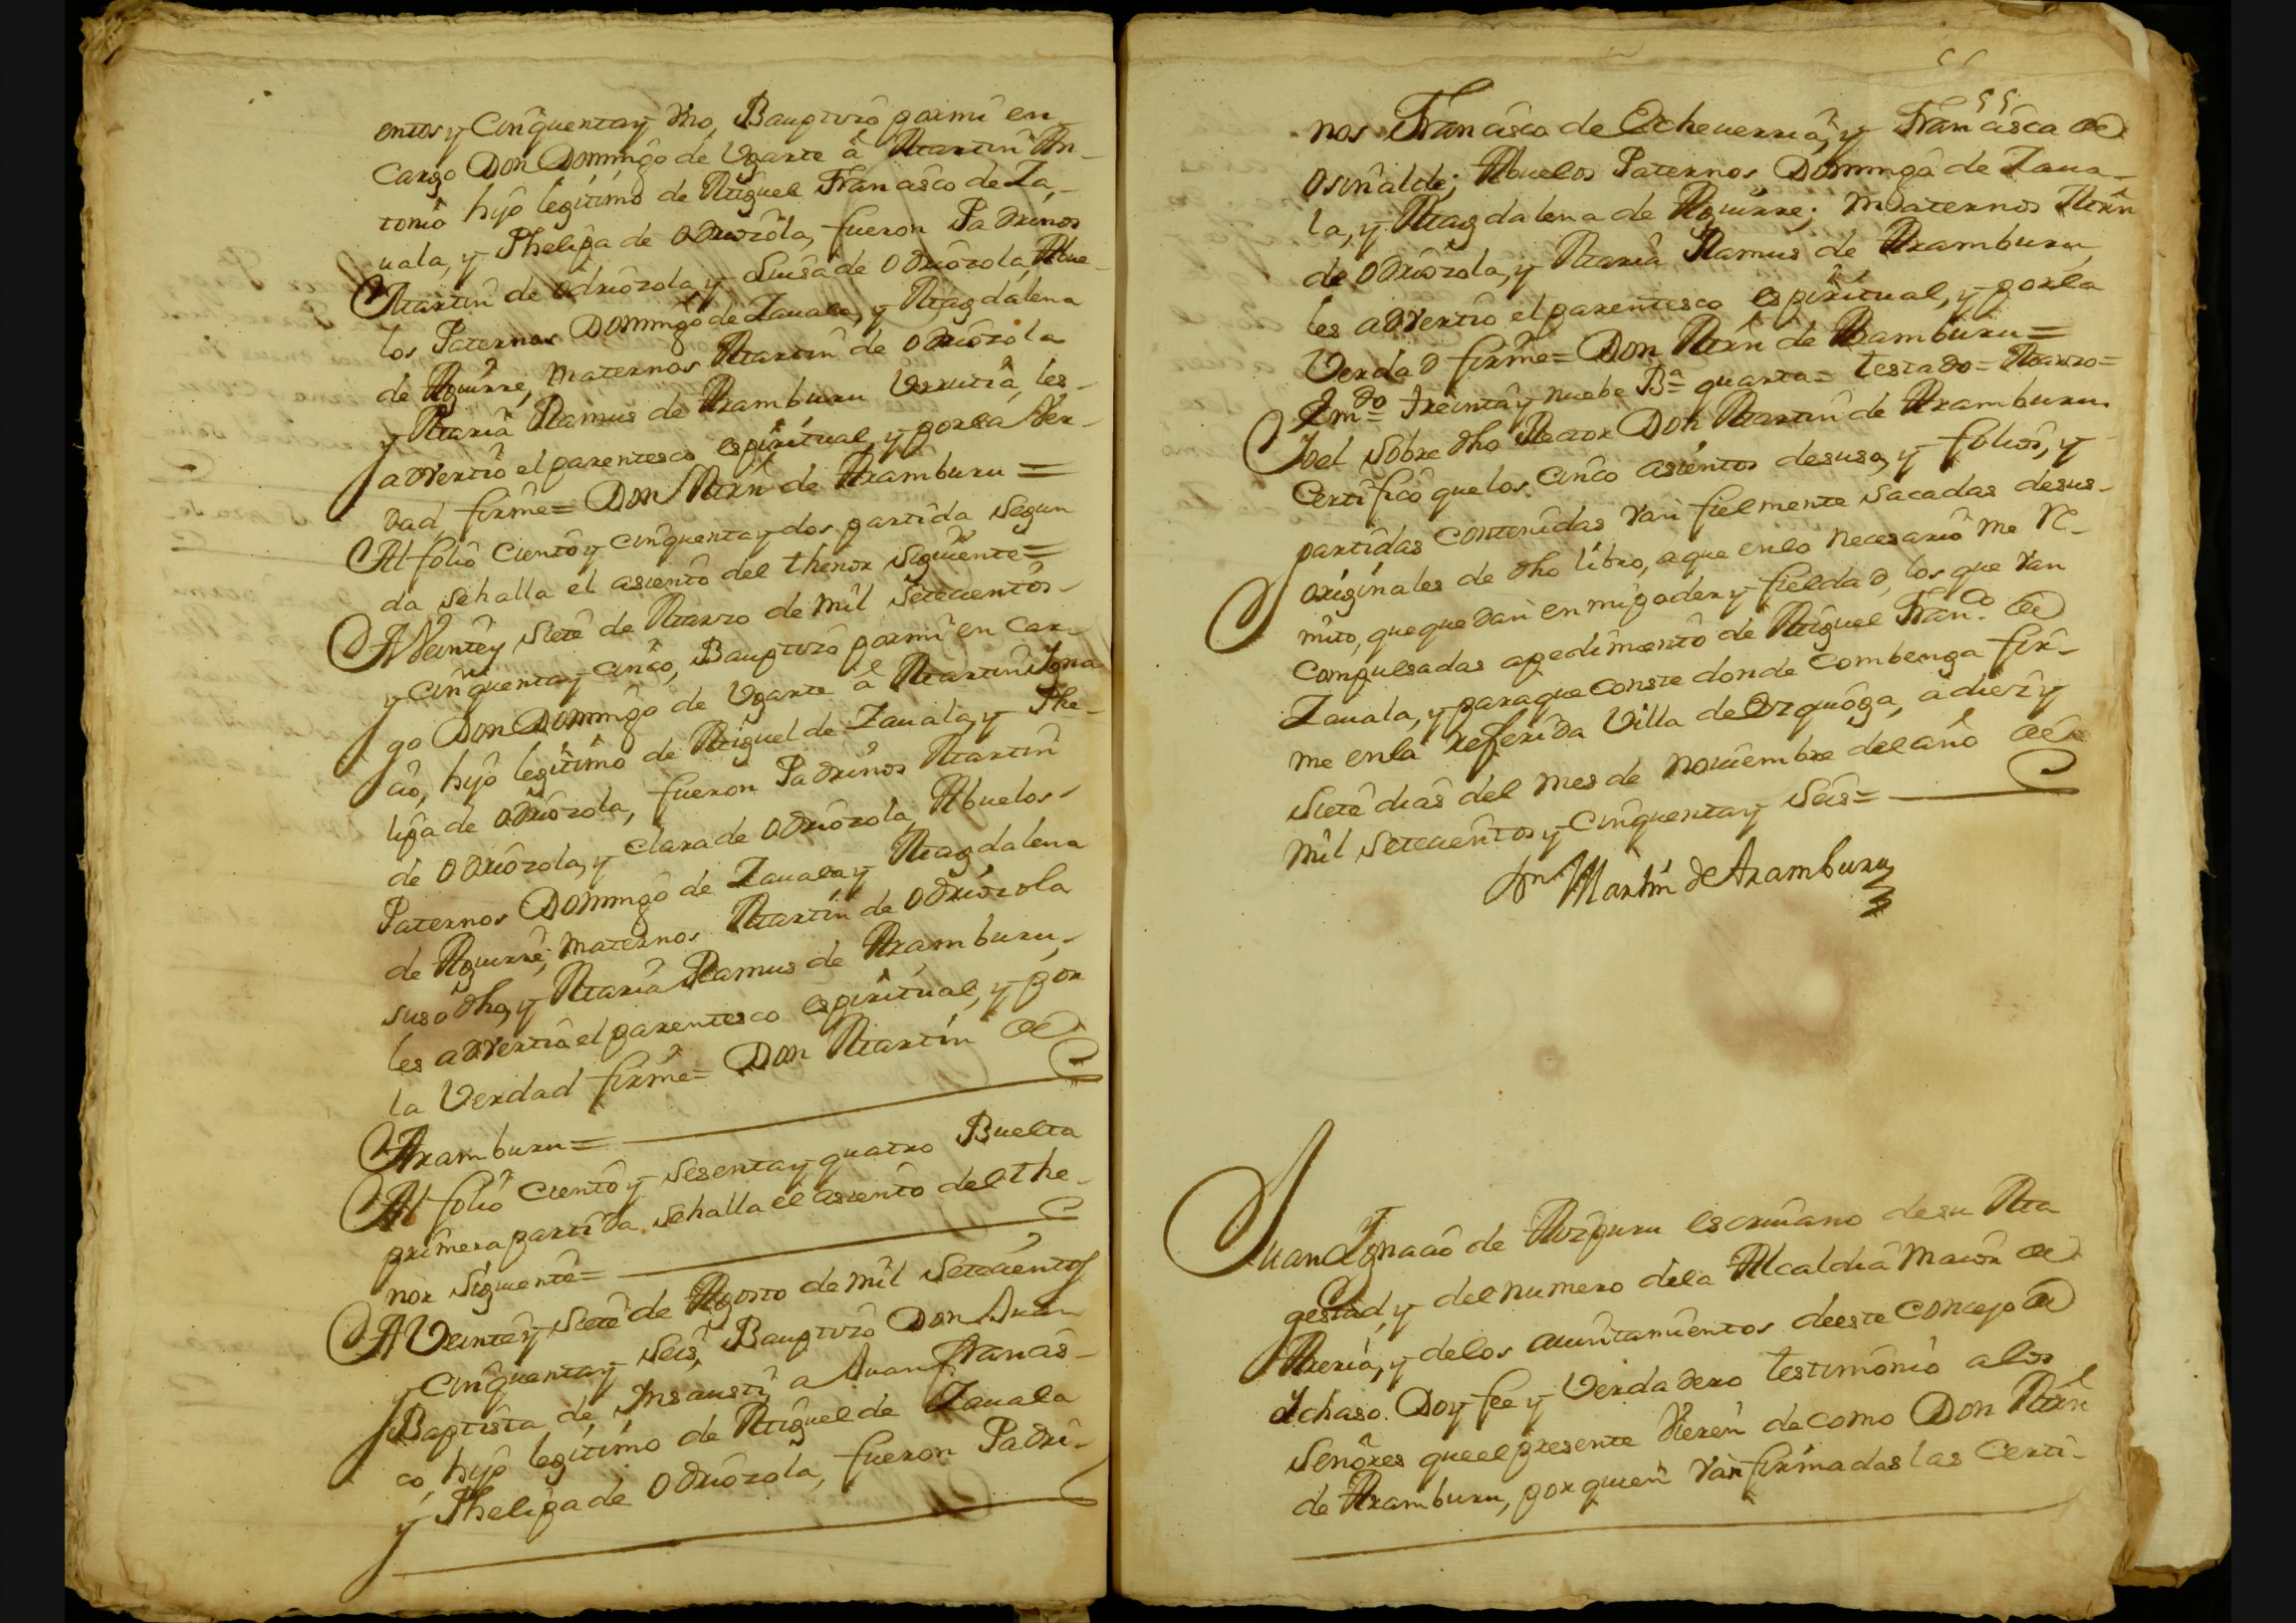 entos y Cinquenta y Vno, Bauptizo por mi en
Cargo Don Domingo de Ugarte â Martin An-
tonio hijo legitimo de Miguel Francisco de Za,-
uala, y Phelipa de Odriòzòla, fueron Padrinos
Martin de Odriòzola, y Luisa de Odriòzola, Abue-
los Paternos Domingo de Zauala, y Magdalena
de Aguirre, Maternos Martin de Odriòzola
y Maria Ramus de Aramburu Urrutia, les-
advertio el parentesco espiritual, y por la Ver-
dad firme= Don Mrn de Aramburu =
Al folio Ciento y cinquenta y dos partida Segun
da se halla el asiento del thenor Siguiente=
A Veinte y Siete de Marzo de Mil Setecientos-
y Cinquenta y cinco, Bauptizo por mi en Car-
go Don Domingo de Ugarte â Martin Igna
cio, hijo legitimo de Miguel de Zauala, y Phe-
lipa de Odriòzola, fueron Padrinos Martin
de Odriòzola, y Clara de Odriòzola, Abuelos-
Paternos Domingo de Zauala y Magdalena
de Aguirre; Maternos Martin de Odriòzola
suso dho, y Maria Ramus de Aramburu,-
les advertio el parentesco espiritual, y por
la Verdad firme= Don Martin de
Aramburu=
Al folio Ciento y Sesenta y quatro Buelta
primera partida se halla el asiento del the-
nor Siguiente=
A Veinte y Siete de Agosto de Mil Setecientos
y Cinquenta y Seis, Bauptizo Don Juan
Baptista de Insausti, a Juan Francis-
co, hijo legitimo de Miguel de Zauala
y Phelipa de Odriòzola, fueron Padri-
55
nos Francisco de Echeuerria, y Francisca de
Osinalde; Abuelos Paternos Domingo de Zaua-
la, y Magdalena de Aguirre; Maternos Mrn
de Odriòzola, y Maria Ramus de Aramburu,
les advertio el parentesco espiritual, y por la
Verdad firme= Don Mrn de Aramburu=
Emdo treinta y nuebe Bª quarta= testado= Marzo=
Yo el Sobre dho Rector Don Martin de Aramburu
Certifico que los cinco asientos de suso, y folios, y
partidas contenidas van fielmente sacadas de sus-
originales de dho libro, a que en lo necesario me re-
mito, que quedan en mi poder y fieldad, los que van
compulsadas a pedimento de Miguel Franco de
Zauala, y para que conste donde combenga fir-
me en la referida Villa de Ozquòga, a diez y
Siete dias del mes de Nouiembre del año de
Mil Setecientos y Cinquenta y Seis=
Dn Martin de Aramburu
Juan Ygnacio de Aizpuru escriuano de su Ma
gestad, y del numero de la Alcaldia Maior de
Areria, y delos aiuntamientos de este Concejo de
Ychaso. Doy fee y Verdadero testimonio a los
Señores que el presente Vieren de como Don Mrn
de Aramburu, por quien Van firmadas las Certi-